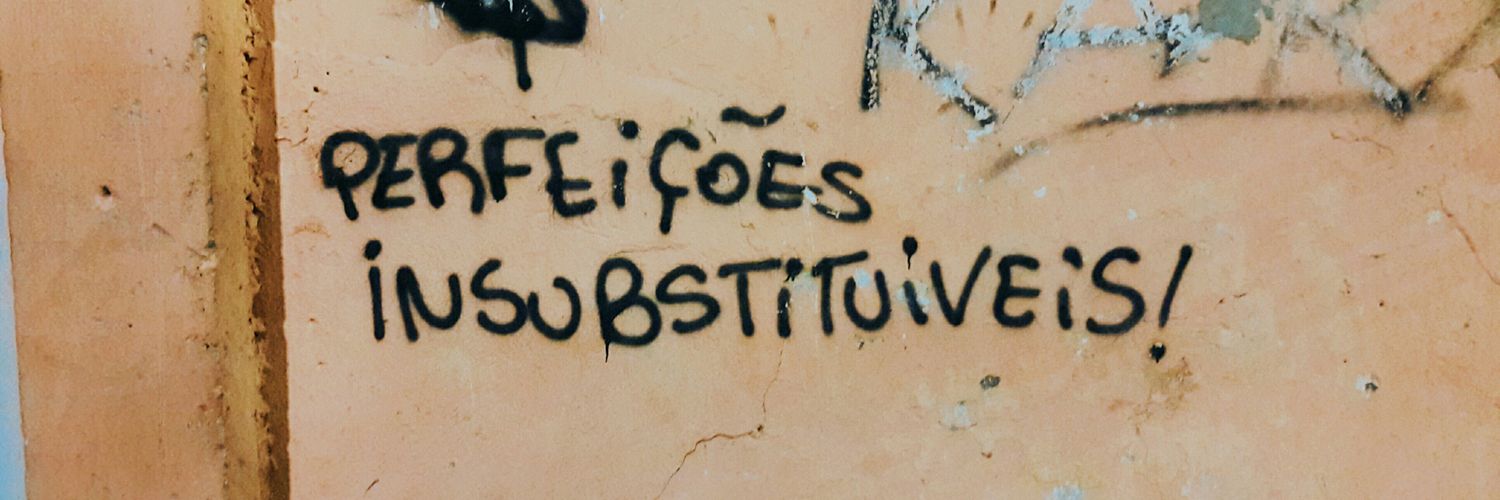 PERFEIÇÕES
INSUBSTITUIVEIS!